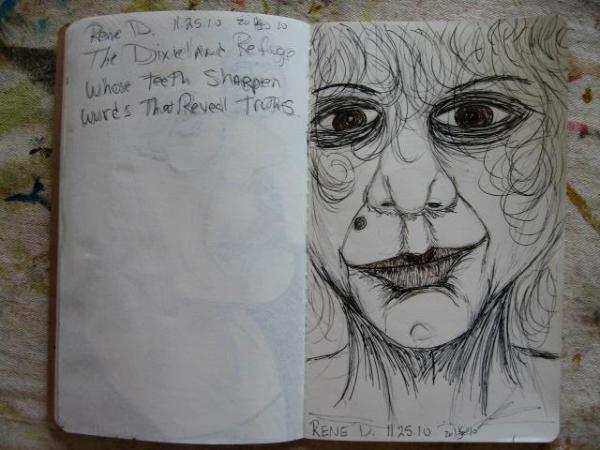 Rene D. 11.25.10
The Dixieland Refuge
whose teeth Sharpen
words That Reveal Truths
RENE D. 11.25.10